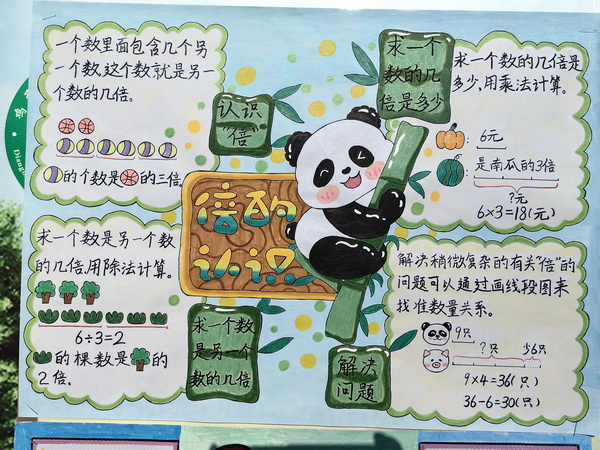 一个数里面包含几个另
一个数,这个数就是另一
个数的几倍。
的个数是的三倍。
认识
"倍"
求一个
数的几
倍是多少
求一个数的几倍是
多少,用乘法计算。
: 6元
: 是南瓜的3倍
?元
6×3=18(元)
倍的
认识
求一个数是另一个数
的几倍,用除法计算。
6÷3=2
的棵数是的
2倍.
求一个数
是另一个
数的几倍
解决
问题
解决稍微复杂的有关"倍"的
问题可以通过画线段图来
找准数量关系。
9只
?只 少6只
9×4=36(只)
36-6=30(只)